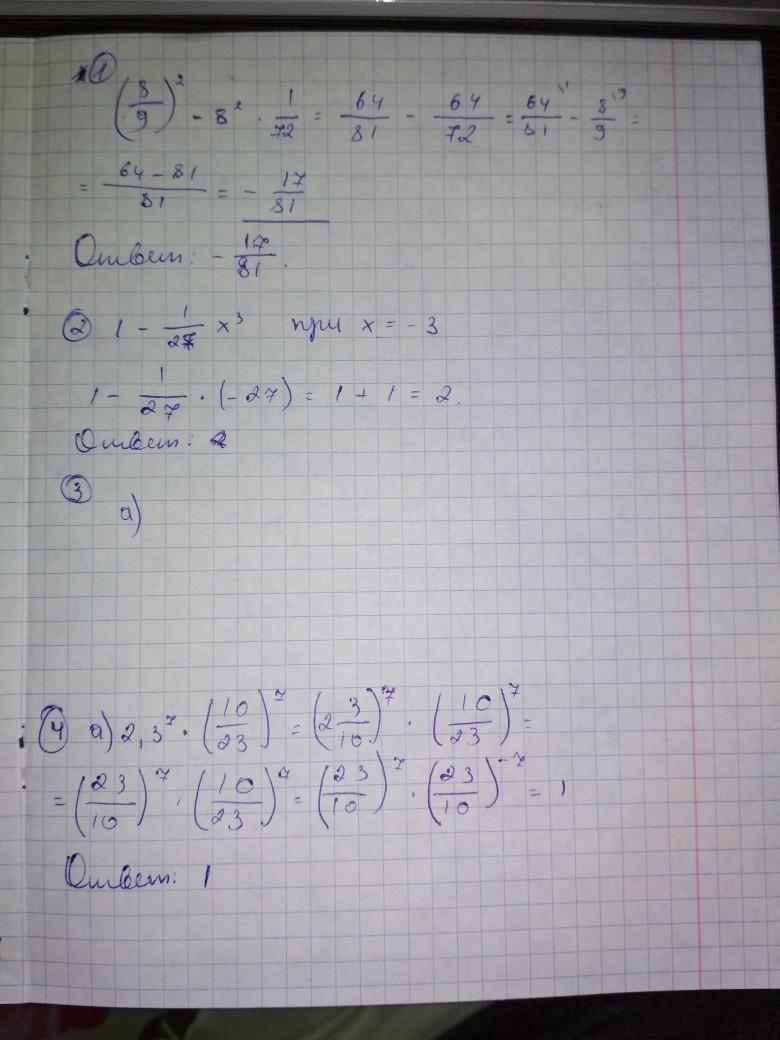 1
(8/9)² - 8² · 1/72 = 64/81 - 64/72 = 64/81 - 8/9 =
= (64 - 81)/81 = - 17/81
Ответ: - 17/81.
2 1 - 1/27 x³ при x = - 3
1 - 1/27 · (- 27) = 1 + 1 = 2.
Ответ: 2
3
а)
4 а) 2,3⁷ · (10/23)⁷ = (2 3/10)⁷ · (10/23)⁷ =
= (23/10)⁷ · (10/23)⁷ = (23/10)⁷ · (23/10)⁻⁷ = 1
Ответ: 1